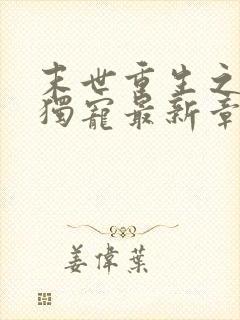 末世重生之
獨寵最新章
姜偉葉